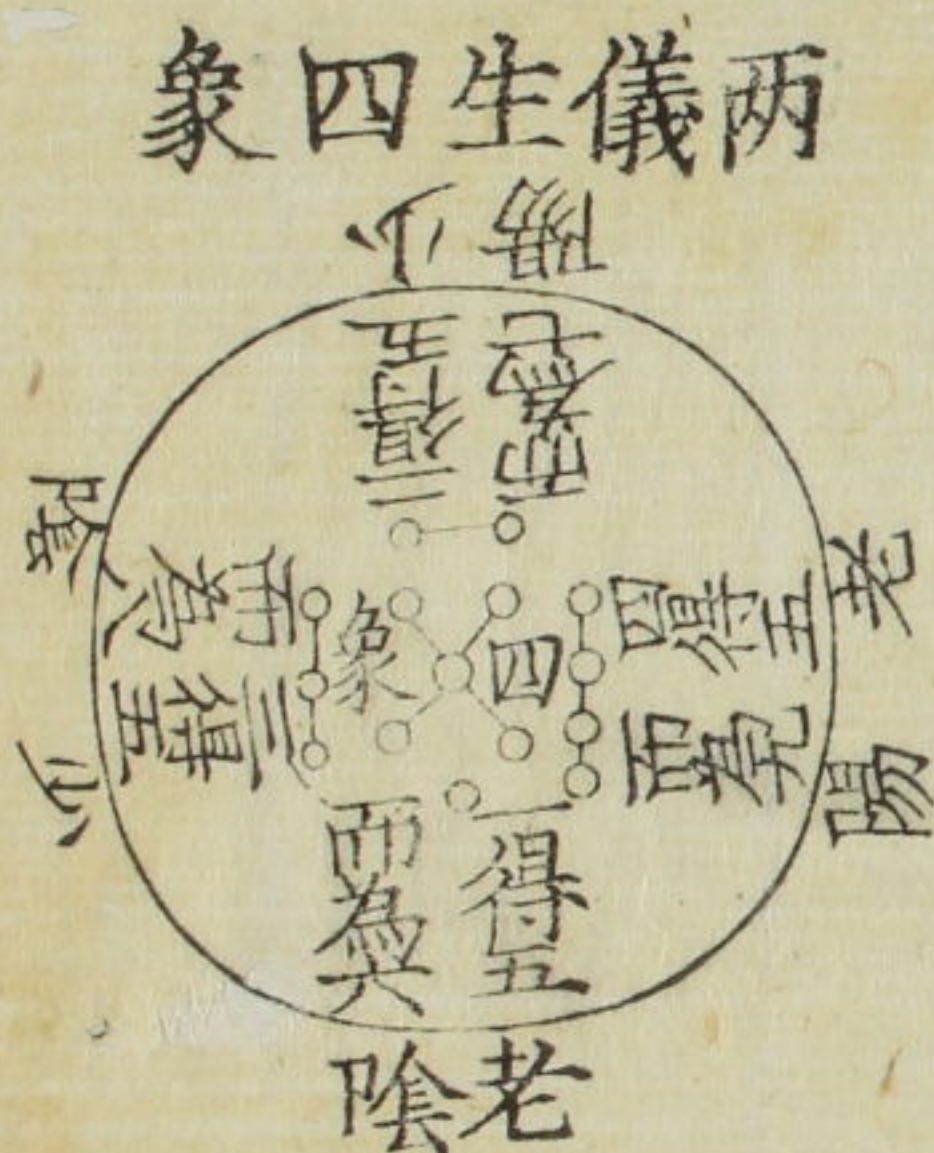 两儀生四象
少陽
二得五
而為七
老陽
四得五
而為九
四象
少陰
三得五
而為八
一得五
而為六
老陰